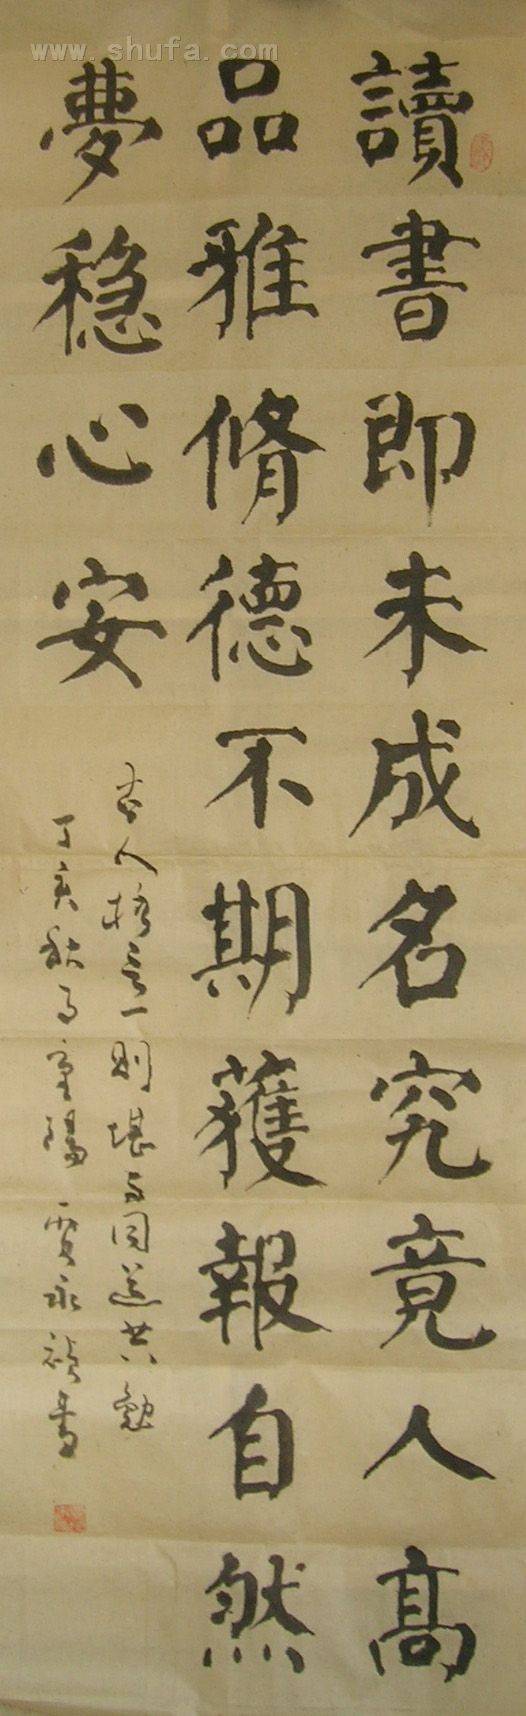 www.shufa.com
讀書即未成名究竟人高
品雅脩德不期獲報自然
夢稳心安
古人格言一则堪与同道共勉
丁亥秋月重陽 贾永祯書